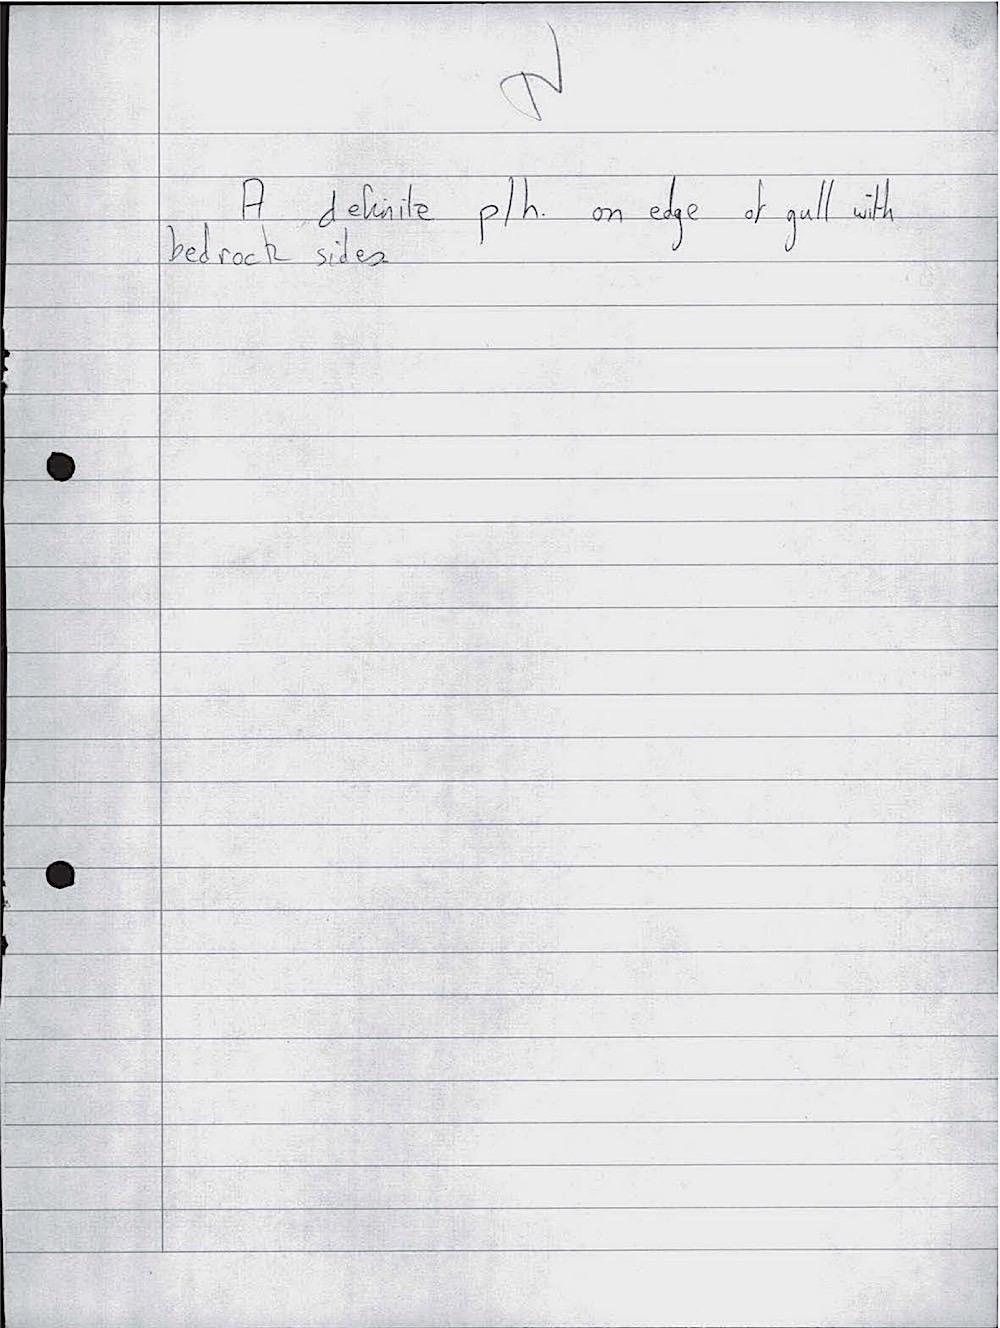 A definite p/h. on edge of gull with
bedrock sides